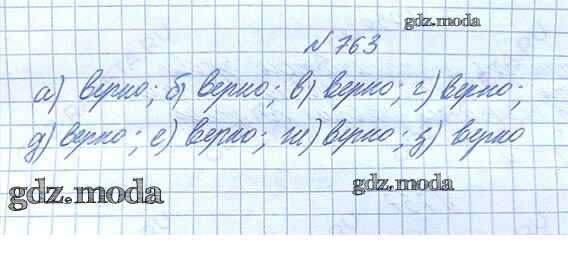 gdz.moda
№ 763
а) верно; б) верно; в) верно; г) верно;
д) верно; е) верно; ж) верно; з) верно
gdz.moda
gdz.moda